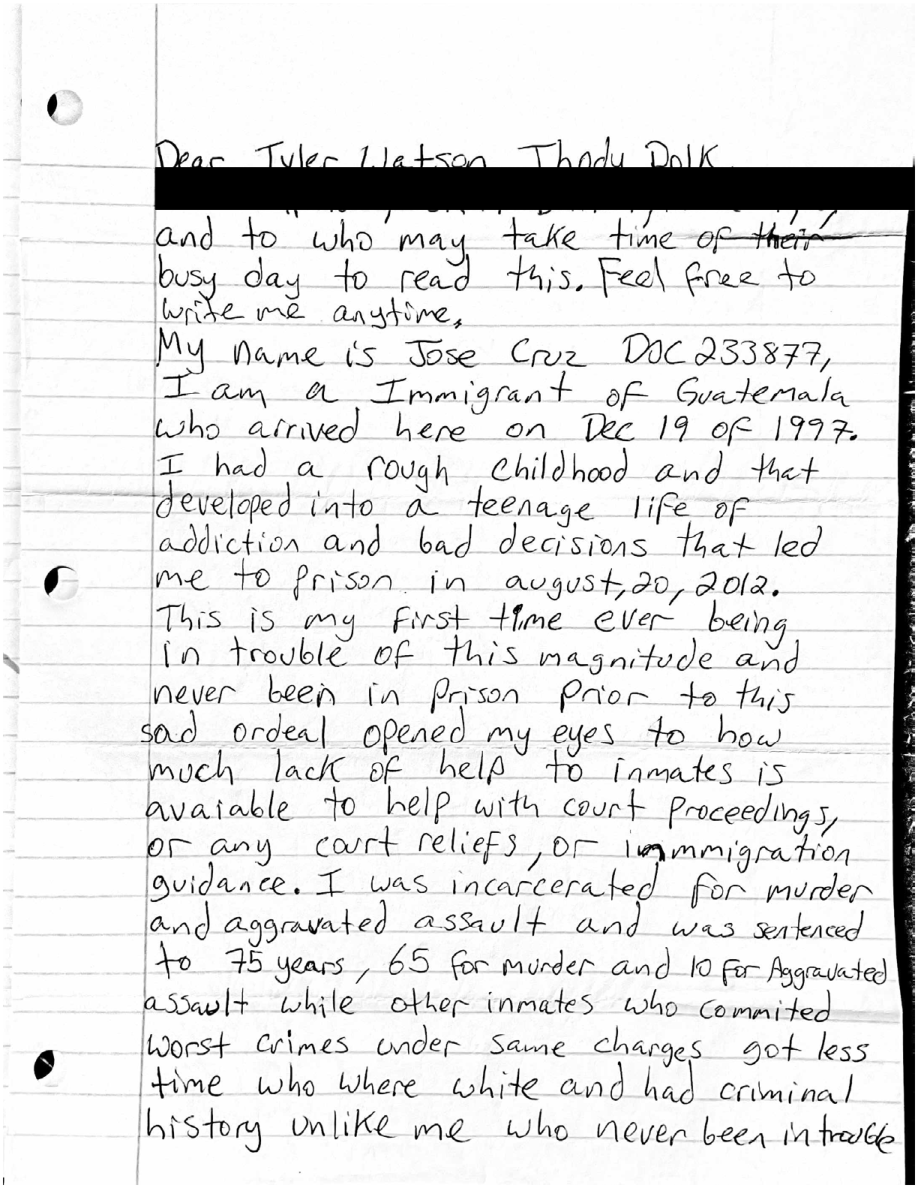 Dear Tyler Watson Thody Dolk
and to who may take time of their
busy day to read this. Feel free to
write me anytime,
My name is Jose Cruz DOC 233877,
I am a Immigrant of Guatemala
who arrived here on Dec 19 of 1997.
I had a rough childhood and that
developed into a teenage life of
addiction and bad decisions that led
me to prison in august, 20, 2012.
This is my first time ever being
in trouble of this magnitude and
never been in prison prior to this
sad ordeal opened my eyes to how
much lack of help to inmates is
avaiable to help with court proceedings,
or any court reliefs, or immigration
guidance. I was incarcerated for murder
and aggravated assault and was sentenced
to 75 years, 65 for murder and 10 for Aggravated
assault while other inmates who commited
worst crimes under same charges got less
time who where white and had criminal
history unlike me who never been in trouble